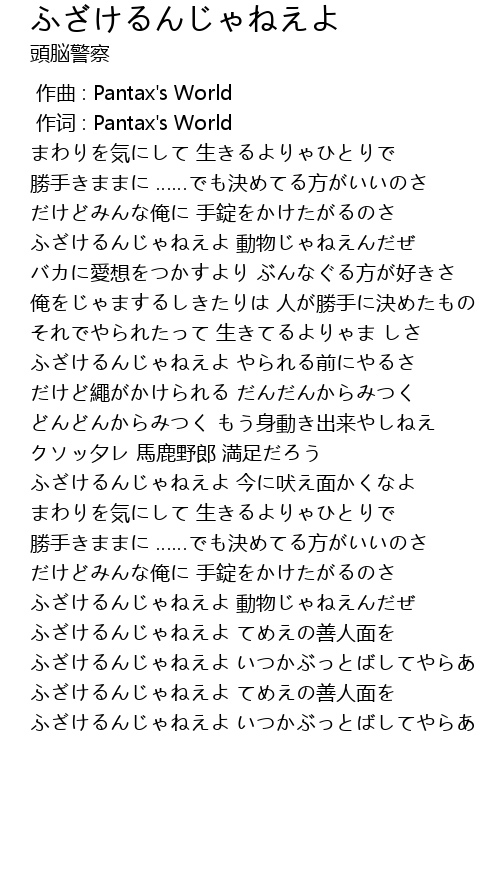 ふざけるんじゃねえよ
頭脳警察
作曲 : Pantax's World
作词 : Pantax's World
まわりを気にして 生きるよりゃひとりで
勝手きままに ......でも決めてる方がいいのさ
だけどみんな俺に 手錠をかけたがるのさ
ふざけるんじゃねえよ 動物じゃねえんだぜ
バカに愛想をつかすより ぶんなぐる方が好きさ
俺をじゃまするしきたりは 人が勝手に決めたもの
それでやられたって 生きてるよりゃま しさ
ふざけるんじゃねえよ やられる前にやるさ
だけど繩がかけられる だんだんからみつく
どんどんからみつく もう身動き出来やしねえ
クソッ夕レ 馬鹿野郎 満足だろう
ふざけるんじゃねえよ 今に吠え面かくなよ
まわりを気にして 生きるよりゃひとりで
勝手きままに ......でも決めてる方がいいのさ
だけどみんな俺に 手錠をかけたがるのさ
ふざけるんじゃねえよ 動物じゃねえんだぜ
ふざけるんじゃねえよ てめえの善人面を
ふざけるんじゃねえよ いつかぶっとばしてやらあ
ふざけるんじゃねえよ てめえの善人面を
ふざけるんじゃねえよ いつかぶっとばしてやらあ